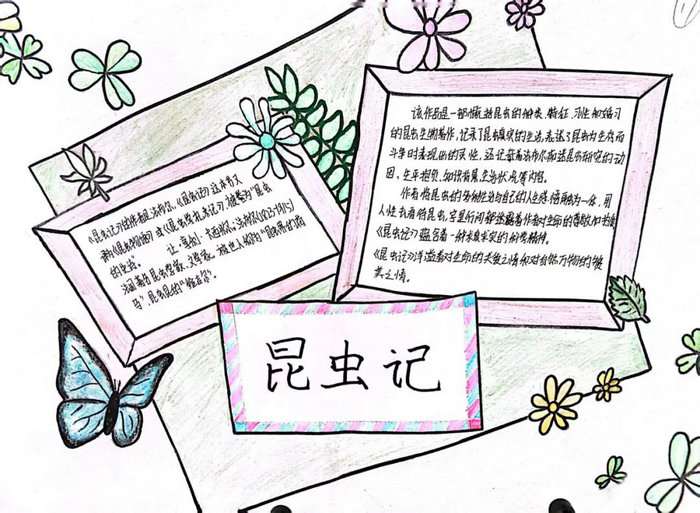 《昆虫记》作者是法布尔,《昆虫记》这本书又
称《昆虫物语》或《昆虫学札记》被誉为"昆虫
的史诗。"
让·亨利·卡西米尔·法布尔(1823-1915)
法国著名昆虫学家、文学家,被世人称为"昆虫界的荷
马",昆虫界的"维吉尔"。
该作品是一部概括昆虫的种类、特征、习性和婚习
的昆虫生物著作,记录了昆虫真实的生活,表述了昆虫为生存而
斗争时表现出的灵性,还记载着法布尔痴迷昆虫研究的动
因、生平抱负、知识背景、生活状况等内容。
作者将昆虫的多彩生活与自己的人生感悟融为一体,用
人性去看待昆虫,字里行间都透露着作者对生命的尊敬和热爱
《昆虫记》蕴含着一种求真求实的科学精神。
《昆虫记》浮溢着对生命的关爱之情和对自然万物的赞
美之情。
昆虫记